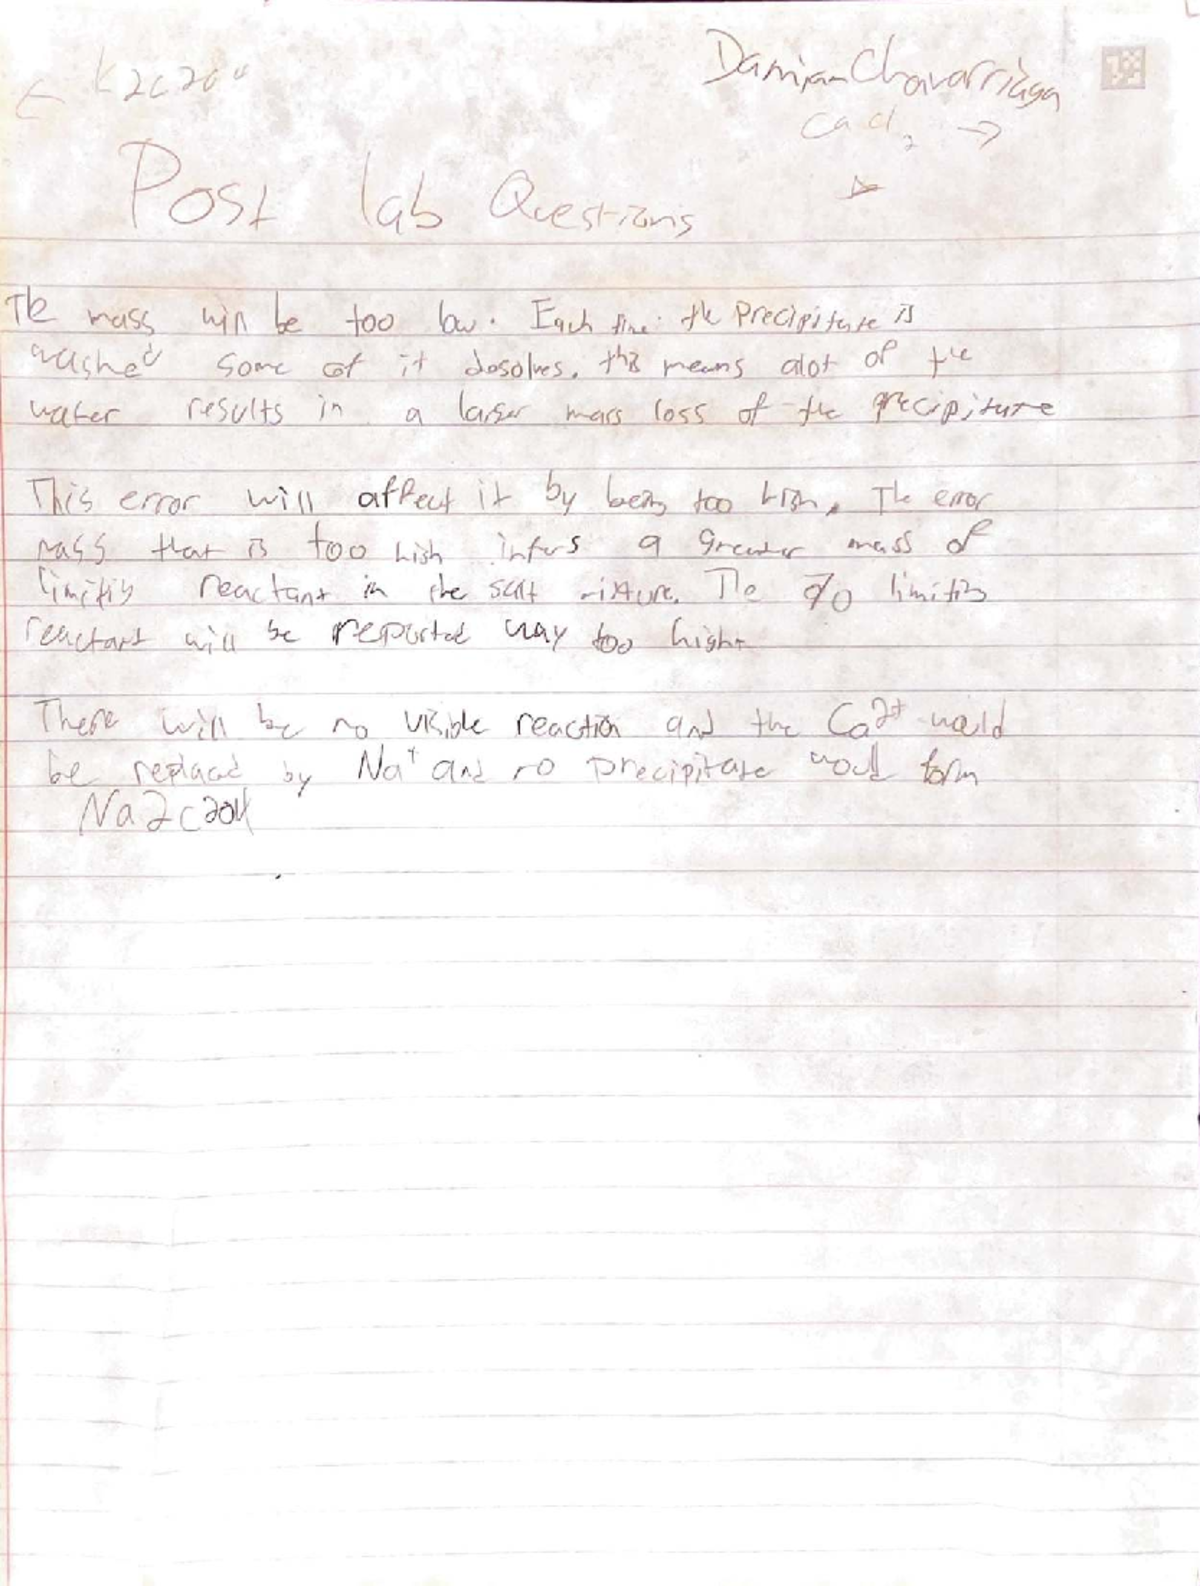 ← K2C2O4
Damian Chavarriaga
CaCl2 →
Post lab Questions
The mass will be too low. Each time the Precipitate is
washed some of it dosolves. this means alot of the
water results in a larger mass loss of the precipitate
This error will affect it by being too high. The error
mass that is too high infers a greater mass of
limiting reactant in the salt mixture. The % limiting
reactant will be reported way too high
There will be no visible reaction and the Ca2+ would
be replaced by Na+ and no precipitate would form
Na2C2O4